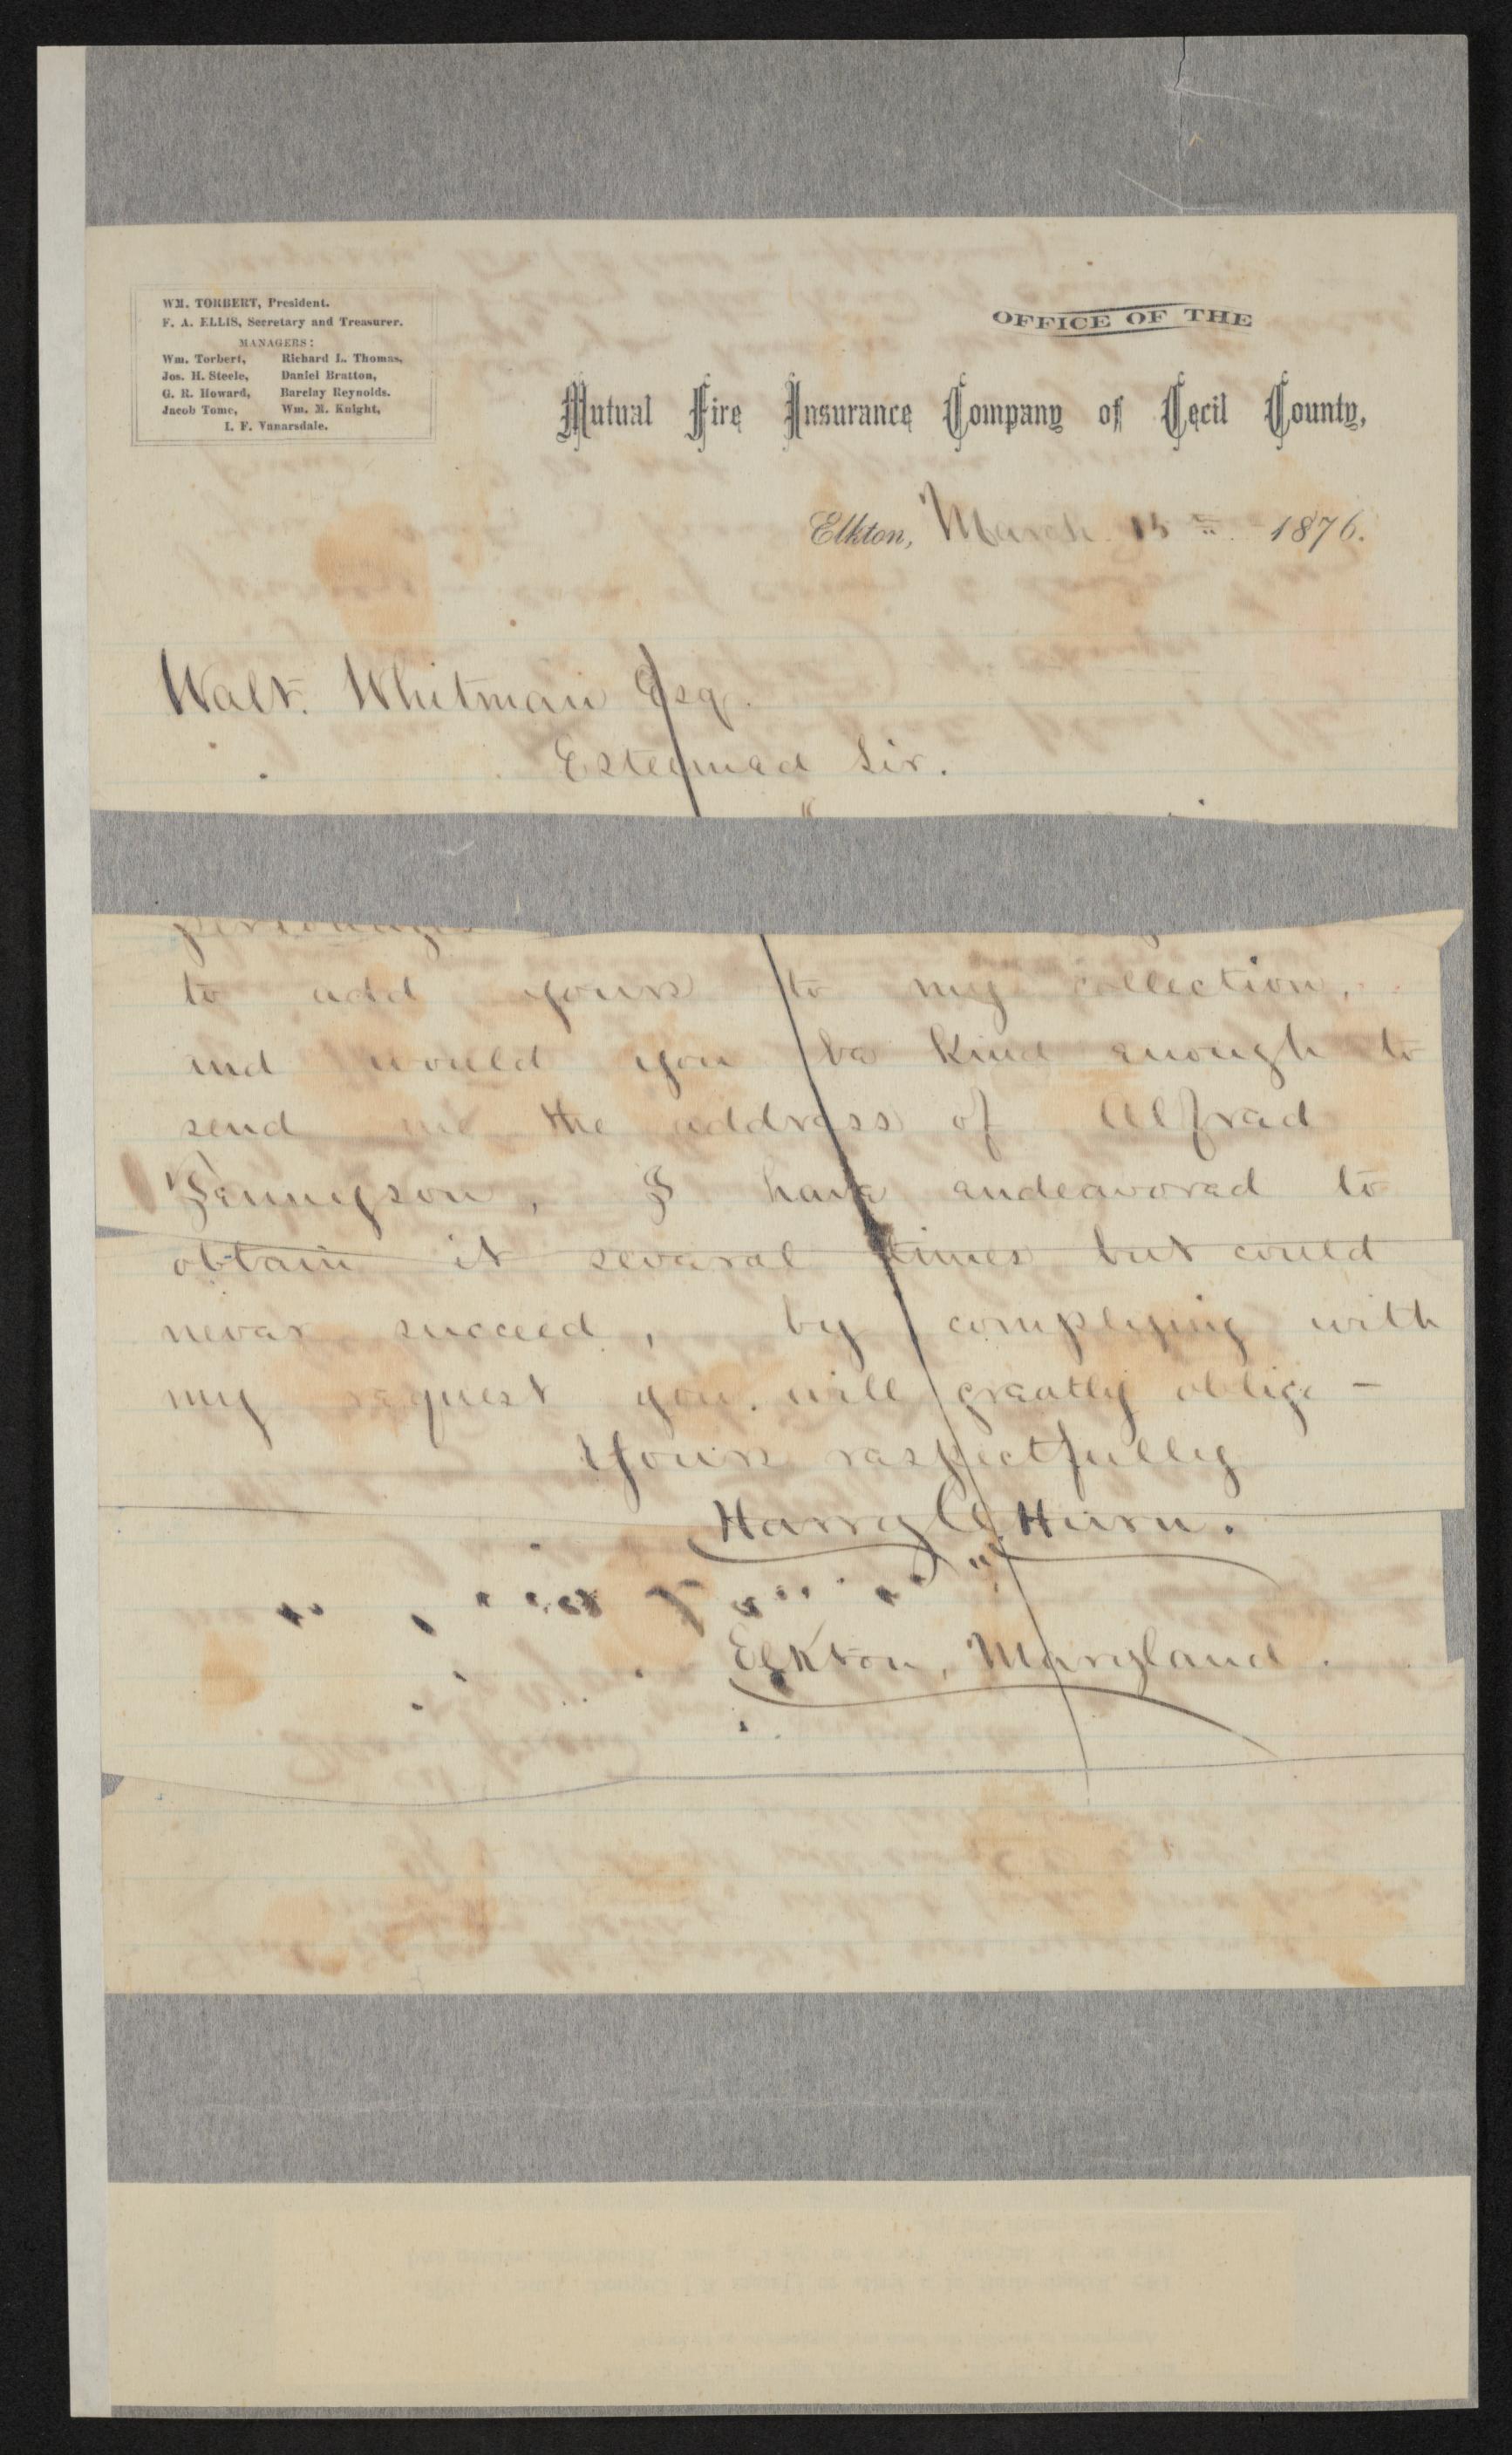 WM. TORBERT, President.
F. A. ELLIS, Secretary and Treasurer.
MANAGERS:
Wm. Torbert, Richard L. Thomas,
Jos. H. Steele, Daniel Bratton,
G. R. Howard, Barclay Reynolds.
Jacob Tome, Wm. M. Knight,
I. F. Vanarsdale.
OFFICE OF THE
Mutual Fire Insurance Company of Cecil County,
Elkton, March 15 1876.
Walt. Whitman Esq.
Esteemed Sir.
personages
to add yours to my collection,
and would you be kind enough to
send me the address of Alfred
Tennyson, I have endeavored to
obtain it several times but could
never succeed, by complying with
my request you will greatly oblige -
Yours respectfully
Harry Hurn.
Elkton, Maryland.